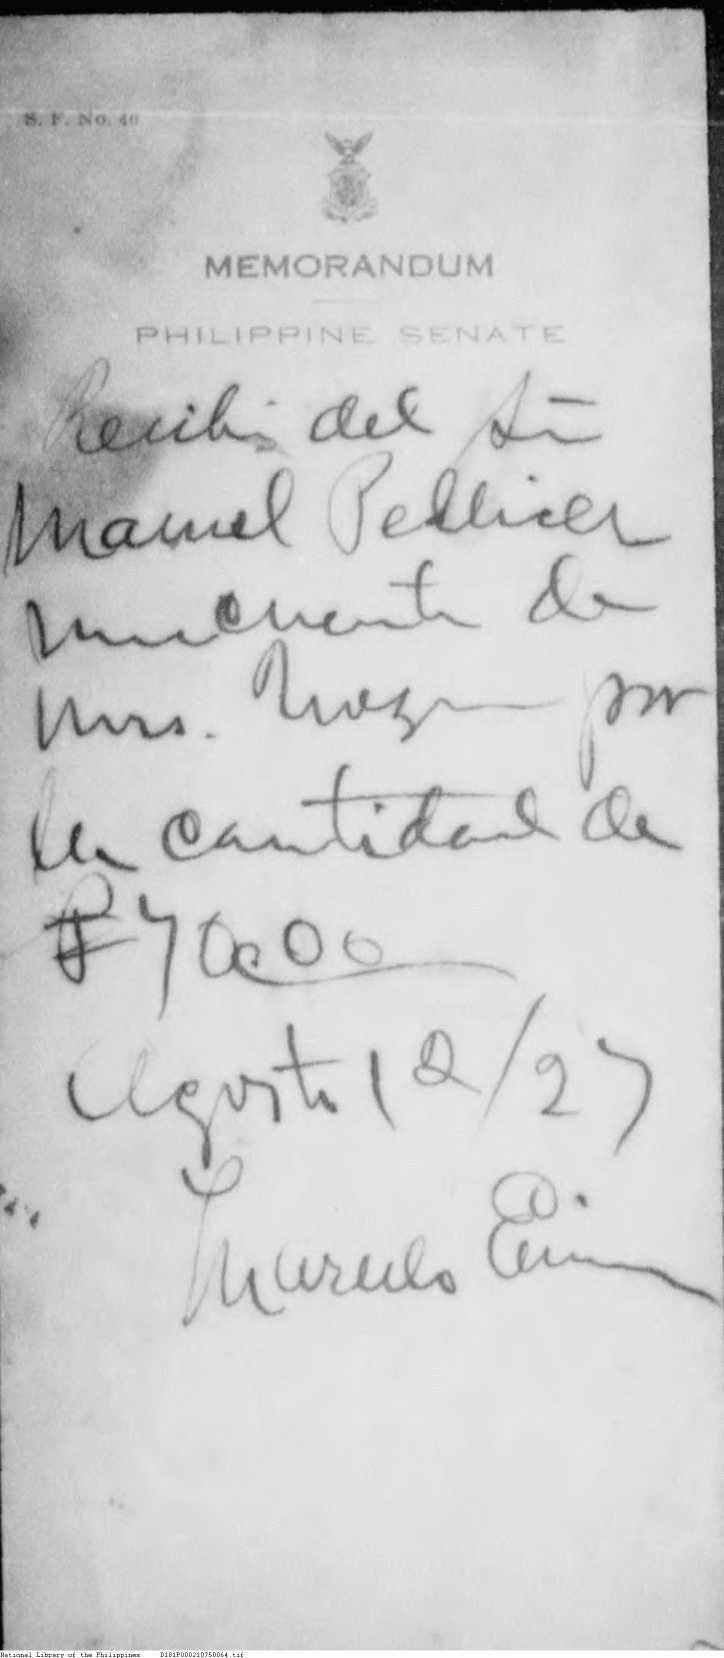 S. F. No. 40
MEMORANDUM
PHILIPPINE SENATE
Recibi del Sr.
Manuel Pellicer
una cuenta de
Mrs. por
la cantidad de
₱70.00
Agosto 12/27
Marcelo
National Library of the Philippines D181P000210750064.tif